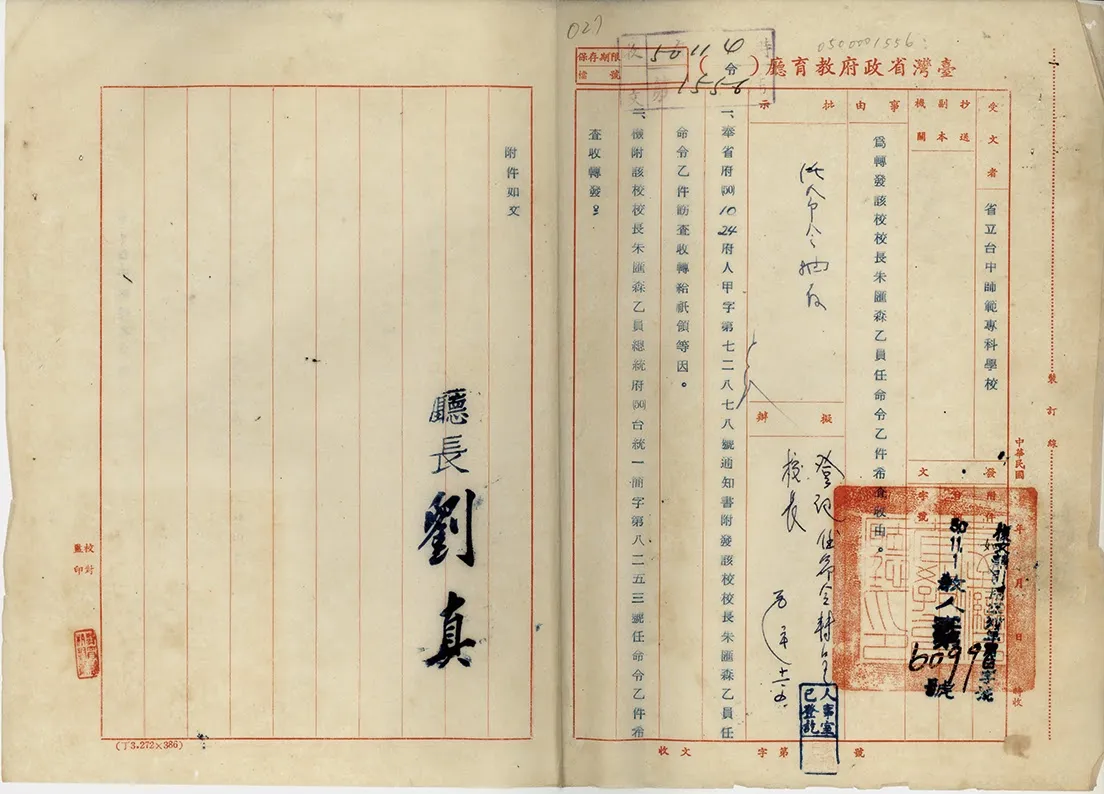 027
0500001556
臺灣省政府教育廳（令）
保存期限
檔號
收文
50 11 4
1556
受文者
省立台中師範專科學校
抄送副本機關
事由
為轉發該校校長朱匯森乙員任命令乙件希查收由。
批示
擬辦
登記任命令轉呈
校長
人事室
已登記
發文
附件
字號
中華民國 年 月 日
50 11. 1
教人
6099
號
裝訂線
一、奉省府㊿10 24府人甲字第七二八七八號通知書附發該校校長朱匯森乙員任
命令乙件飭查收轉給祇領等因。
二、檢附該校校長朱匯森乙員總統府㊿台統一簡字第八二五三號任命令乙件希
查收轉發。
附件如文
廳長 劉真
校對
監印
收文 字第 號
(丁3.272×386)